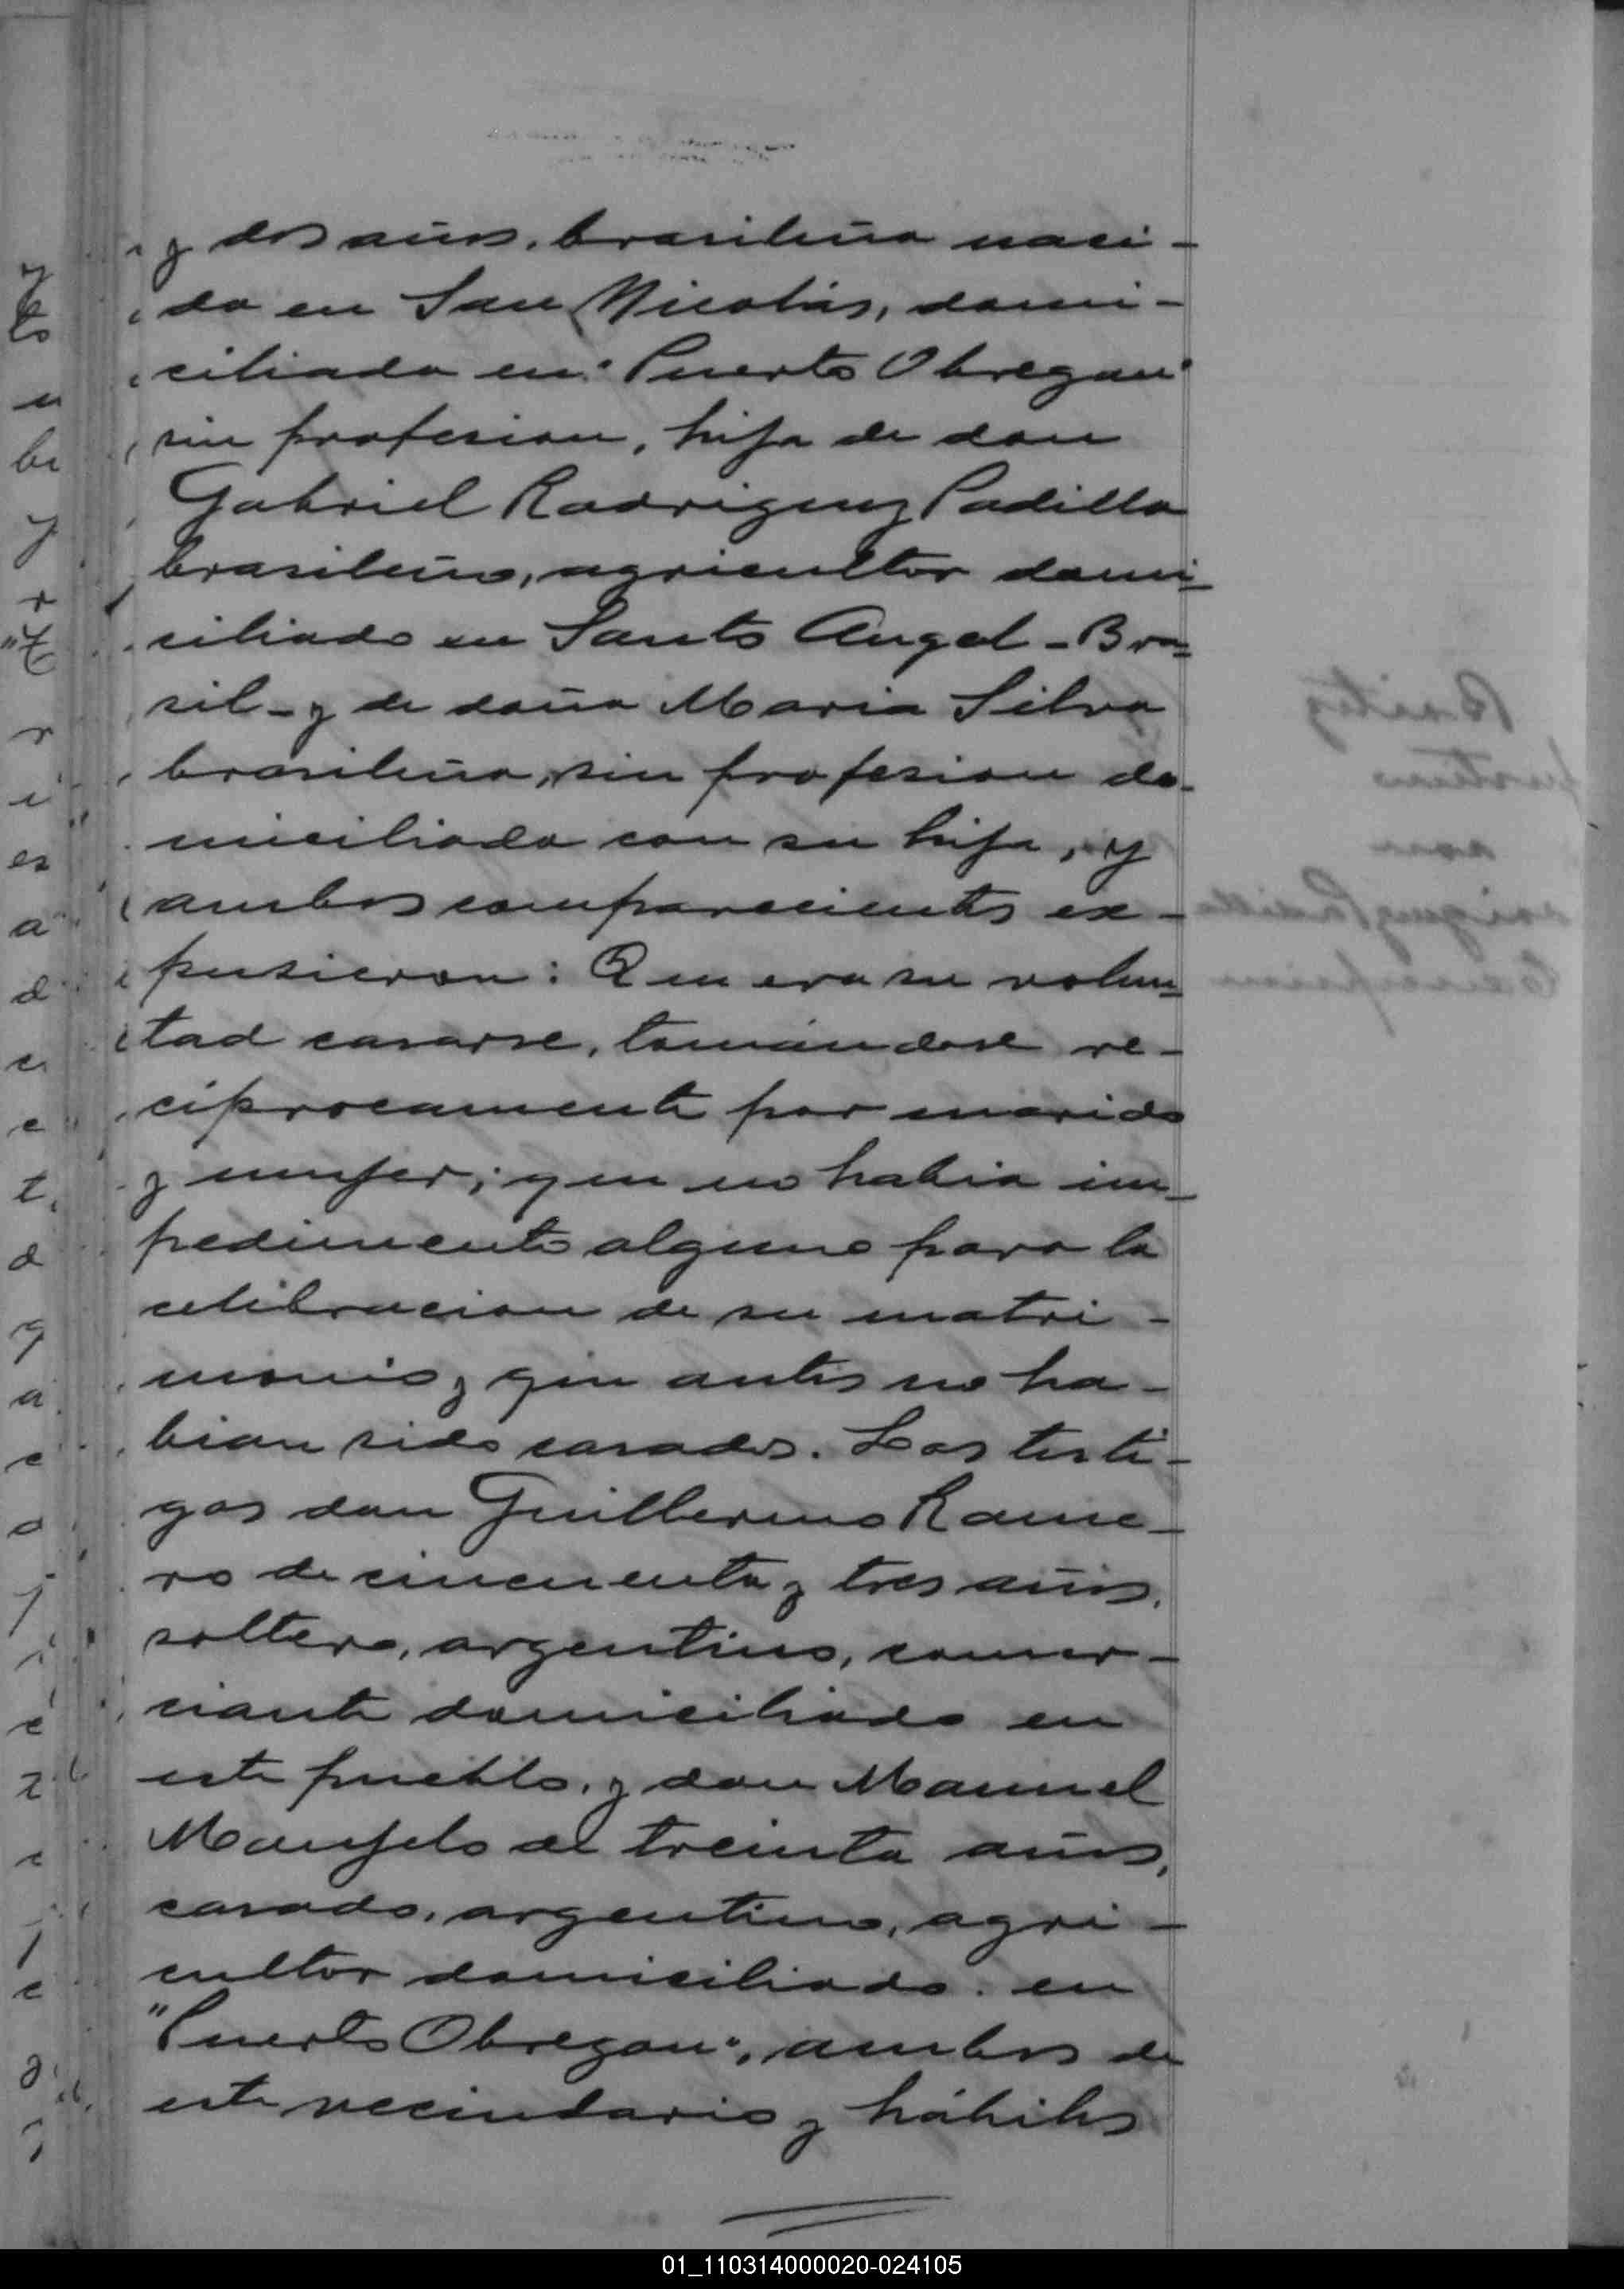 y dos años, brasileña naci-
da en San Nicolás, domi-
ciliada en "Puerto Obregon"
sin profesion, hija de don
Gabriel Rodriguez Padilla
brasileño, agricultor domi-
ciliado en Santo Angel - Bra-
sil - y de doña Maria Silva
brasileña, sin profesion do-
miciliada con su hija, y
ambos comparecientes ex-
pusieron: Que era su volun-
tad casarse, tomándose re-
ciprocamente por marido
y mujer; que no habia im-
pedimento alguno para la
celebracion de su matri-
monio y que antes no ha-
bian sido casados. Los testi-
gos don Guillermo Rome-
ro de cincuenta y tres años,
soltero, argentino, comer-
ciante domiciliado en
este pueblo, y don Manuel
de treinta años,
casado, argentino, agri-
cultor domiciliado en
"Puerto Obregon", ambos de
este vecindario y hábiles
01_110314000020-024105